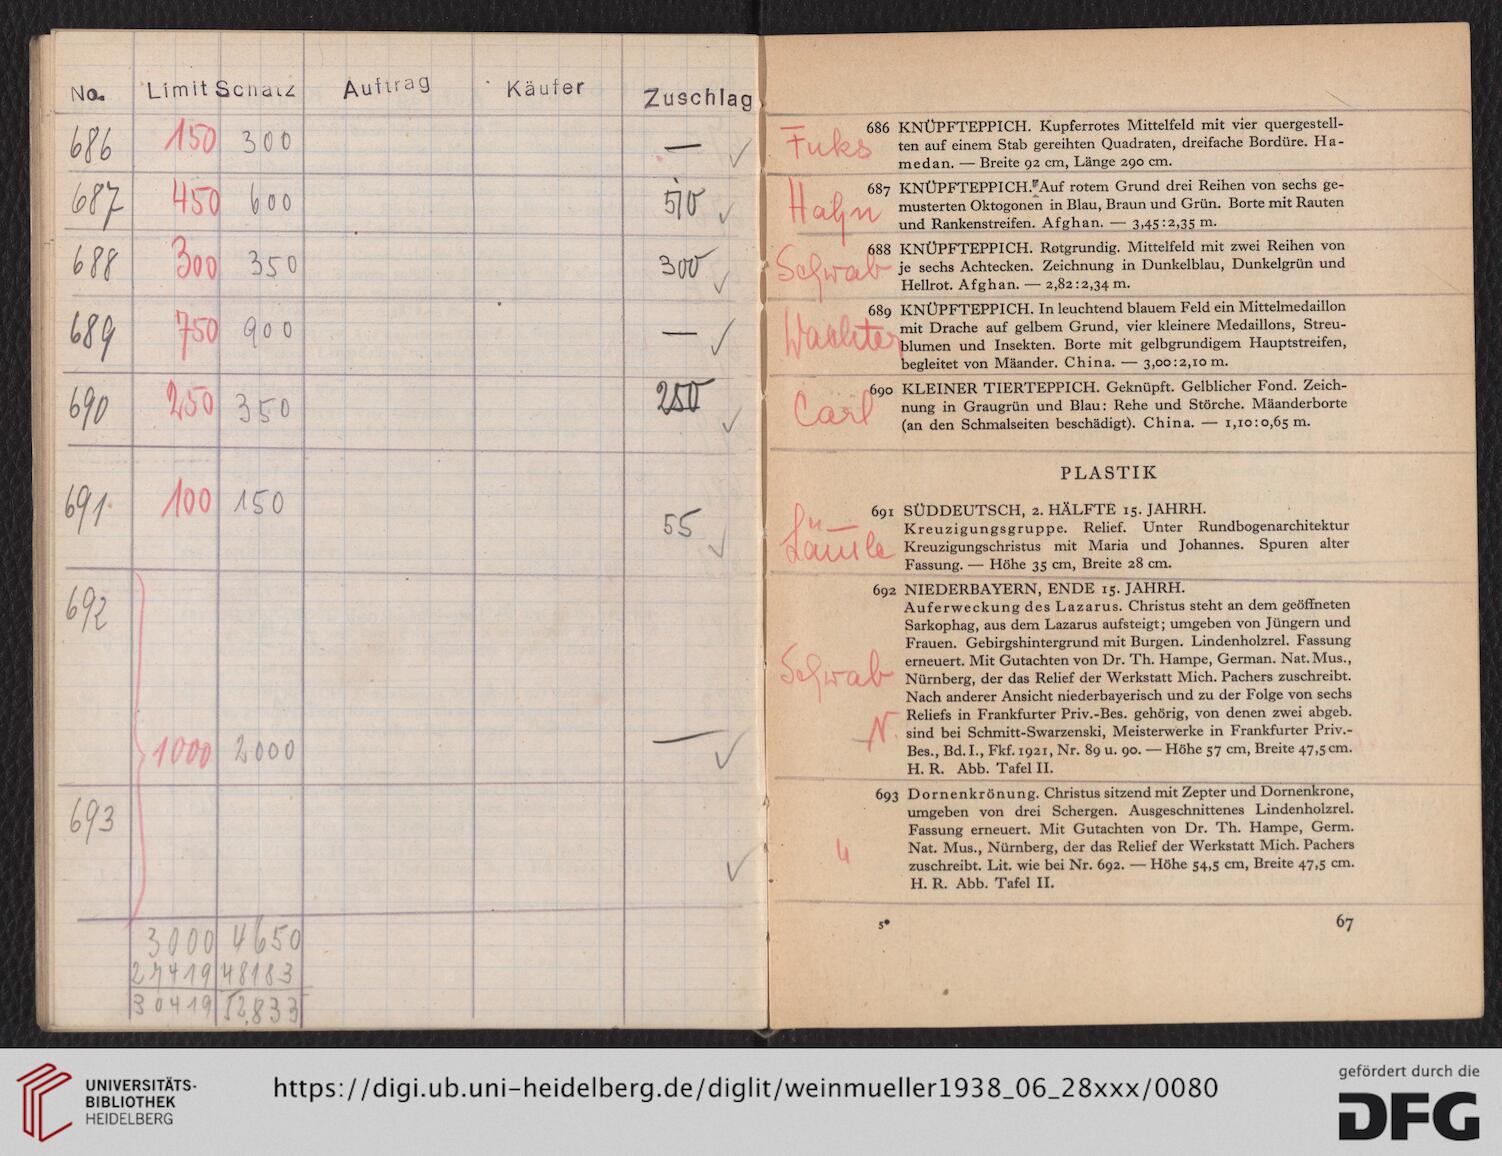 No. Limit Schatz Auftrag Käufer Zuschlag
686 150 300 —
687 450 600 510
688 300 350 300
689 750 900 —
690 250 350 250
691 100 150 55
692
1000 2000 —
693
3000 4650
27419 48183
30419 52,833
Fuks
686 KNÜPFTEPPICH. Kupferrotes Mittelfeld mit vier quergestell-
ten auf einem Stab gereihten Quadraten, dreifache Bordüre. Ha-
medan. — Breite 92 cm, Länge 290 cm.
Hahn
687 KNÜPFTEPPICH. Auf rotem Grund drei Reihen von sechs ge-
musterten Oktogonen in Blau, Braun und Grün. Borte mit Rauten
und Rankenstreifen. Afghan. — 3,45:2,35 m.
Schwab
688 KNÜPFTEPPICH. Rotgrundig. Mittelfeld mit zwei Reihen von
je sechs Achtecken. Zeichnung in Dunkelblau, Dunkelgrün und
Hellrot. Afghan. — 2,82:2,34 m.
Wachter
689 KNÜPFTEPPICH. In leuchtend blauem Feld ein Mittelmedaillon
mit Drache auf gelbem Grund, vier kleinere Medaillons, Streu-
blumen und Insekten. Borte mit gelbgrundigem Hauptstreifen,
begleitet von Mäander. China. — 3,00:2,10 m.
Carl
690 KLEINER TIERTEPPICH. Geknüpft. Gelblicher Fond. Zeich-
nung in Graugrün und Blau: Rehe und Störche. Mäanderborte
(an den Schmalseiten beschädigt). China. — 1,10:0,65 m.
PLASTIK
691 SÜDDEUTSCH, 2. HÄLFTE 15. JAHRH.
Kreuzigungsgruppe. Relief. Unter Rundbogenarchitektur
Kreuzigungschristus mit Maria und Johannes. Spuren alter
Fassung. — Höhe 35 cm, Breite 28 cm.
692 NIEDERBAYERN, ENDE 15. JAHRH.
Auferweckung des Lazarus. Christus steht an dem geöffneten
Sarkophag, aus dem Lazarus aufsteigt; umgeben von Jüngern und
Frauen. Gebirgshintergrund mit Burgen. Lindenholzrel. Fassung
erneuert. Mit Gutachten von Dr. Th. Hampe, German. Nat. Mus.,
Schwab
Nürnberg, der das Relief der Werkstatt Mich. Pachers zuschreibt.
Nach anderer Ansicht niederbayerisch und zu der Folge von sechs
Reliefs in Frankfurter Priv.-Bes. gehörig, von denen zwei abgeb.
N.
sind bei Schmitt-Swarzenski, Meisterwerke in Frankfurter Priv.-
Bes., Bd. I., Fkf. 1921, Nr. 89 u. 90. — Höhe 57 cm, Breite 47,5 cm.
H. R. Abb. Tafel II.
693 Dornenkrönung. Christus sitzend mit Zepter und Dornenkrone,
umgeben von drei Schergen. Ausgeschnittenes Lindenholzrel.
Fassung erneuert. Mit Gutachten von Dr. Th. Hampe, Germ.
Nat. Mus., Nürnberg, der das Relief der Werkstatt Mich. Pachers
zuschreibt. Lit. wie bei Nr. 692. — Höhe 54,5 cm, Breite 47,5 cm.
H. R. Abb. Tafel II.
5* 67
UNIVERSITÄTS-
BIBLIOTHEK
HEIDELBERG
https://digi.ub.uni-heidelberg.de/diglit/weinmueller1938_06_28xxx/0080
gefördert durch die
DFG